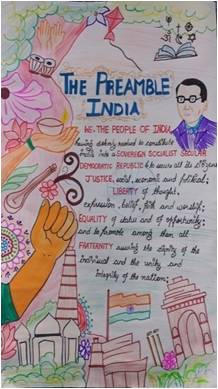 THE PREAMBLE
INDIA
WE, THE PEOPLE OF INDIA,
having solemnly resolved to constitute
India into a SOVEREIGN SOCIALIST SECULAR
DEMOCRATIC REPUBLIC & to secure all its citizens
JUSTICE, social, economic and political;
LIBERTY of thought,
expression, belief, faith and worship;
EQUALITY of status and of opportunity;
and to promote among them all
FRATERNITY assuring the dignity of the
individual and the unity and
integrity of the nation;